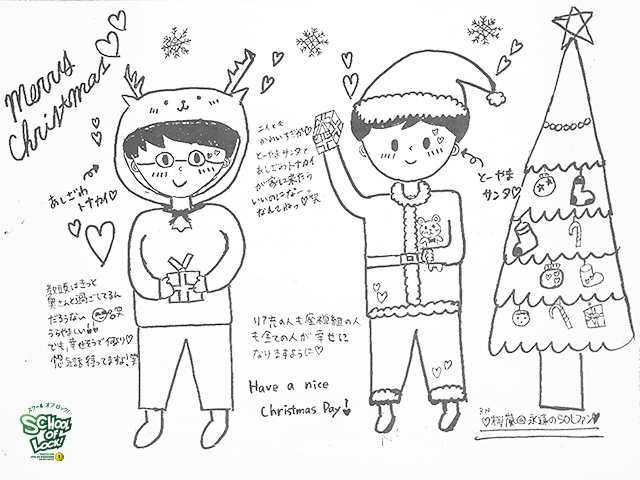 Merry
Christmas
あしざわ
トナカイ♡
二人とも
かわいすぎか!♡
とーやまサンタと
あしざわトナカイ
が家に来たら
いいのになー。
なんてねっ♡笑
とーやま
サンタ♡
教頭はきっと
奥さんと過ごしてるん
だろうな
うらやましい
でも、幸せそうで何より♡
惚気話待ってますね!笑
リア充の人も
も全ての人が幸せに
なりますように♡
Have a nice
Christmas Day!
P.N
♡桜嵐@永遠のSOLファン♥
スクール オブ ロック!
SCHOOL
OF
LOCK!